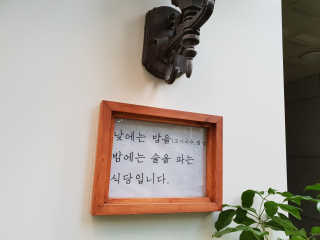 낮에는 밥을
밤에는 술을 파는
식당입니다.